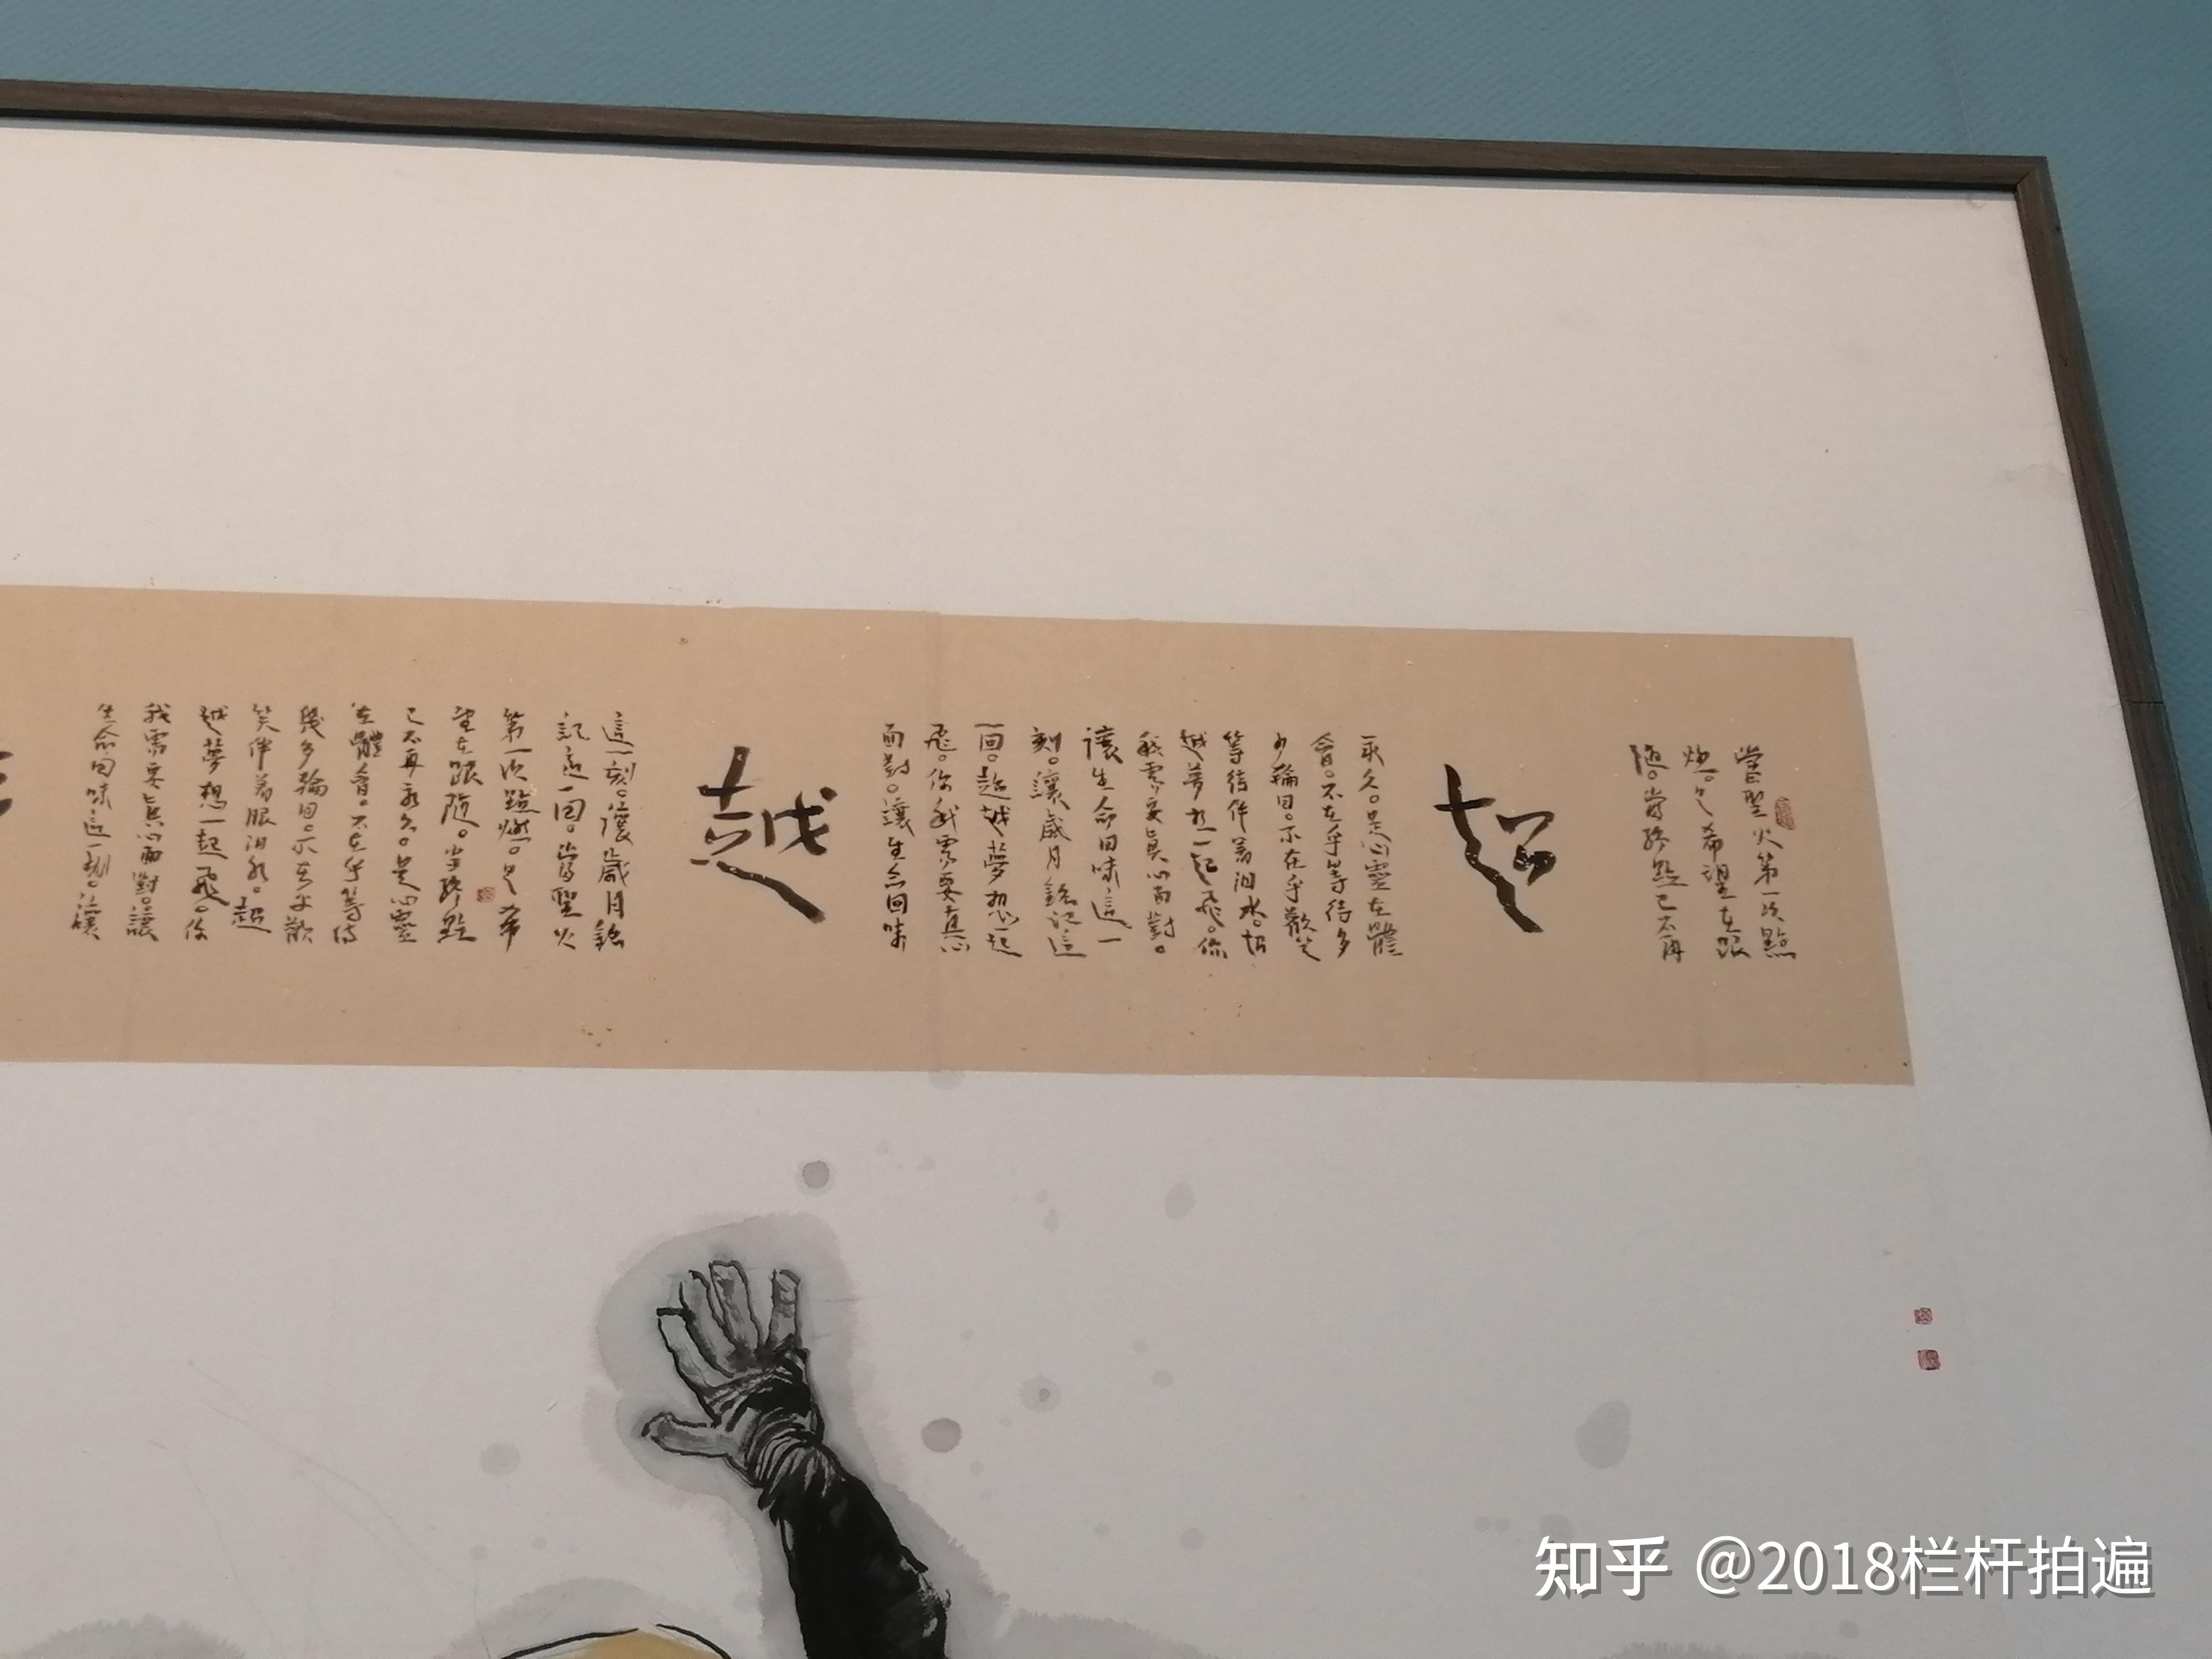 當聖火第一次點
燃。是希望在跟
隨。當終點已不再
超
永久。是心靈在體
會。不在乎等待多
少輪回。不在乎歡笑
等待伴着泪水。超
越夢想一起飛。你
我需要真心面對。
讓生命回味這一
刻。讓歲月銘記這
一回。超越夢想一起
飛。你我需要真心
面對。讓生命回味
越
這一刻。讓歲月銘
記這一回。當聖火
第一次點燃。是希
望在跟隨。當終點
已不再永久。是心靈
在體會。不在乎等待
幾多輪回。不在乎歡
笑伴着眼泪水。超
越夢想一起飛。你
我需要真心面對。讓
生命回味這一刻。讓
知乎 @2018栏杆拍遍